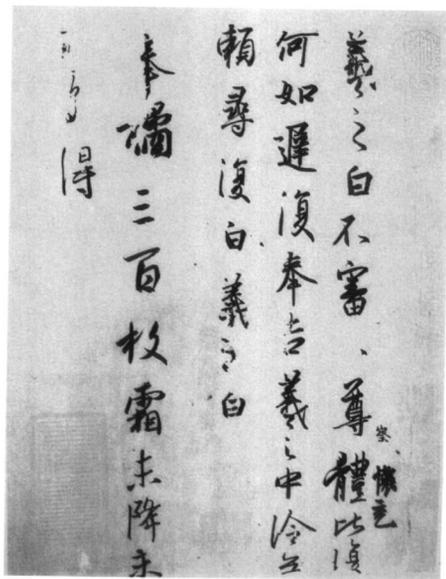 羲之白不審、尊體比復
何如遲復奉告羲之中冷無
賴尋復白羲之白
奉橘三百枚霜未降未
得